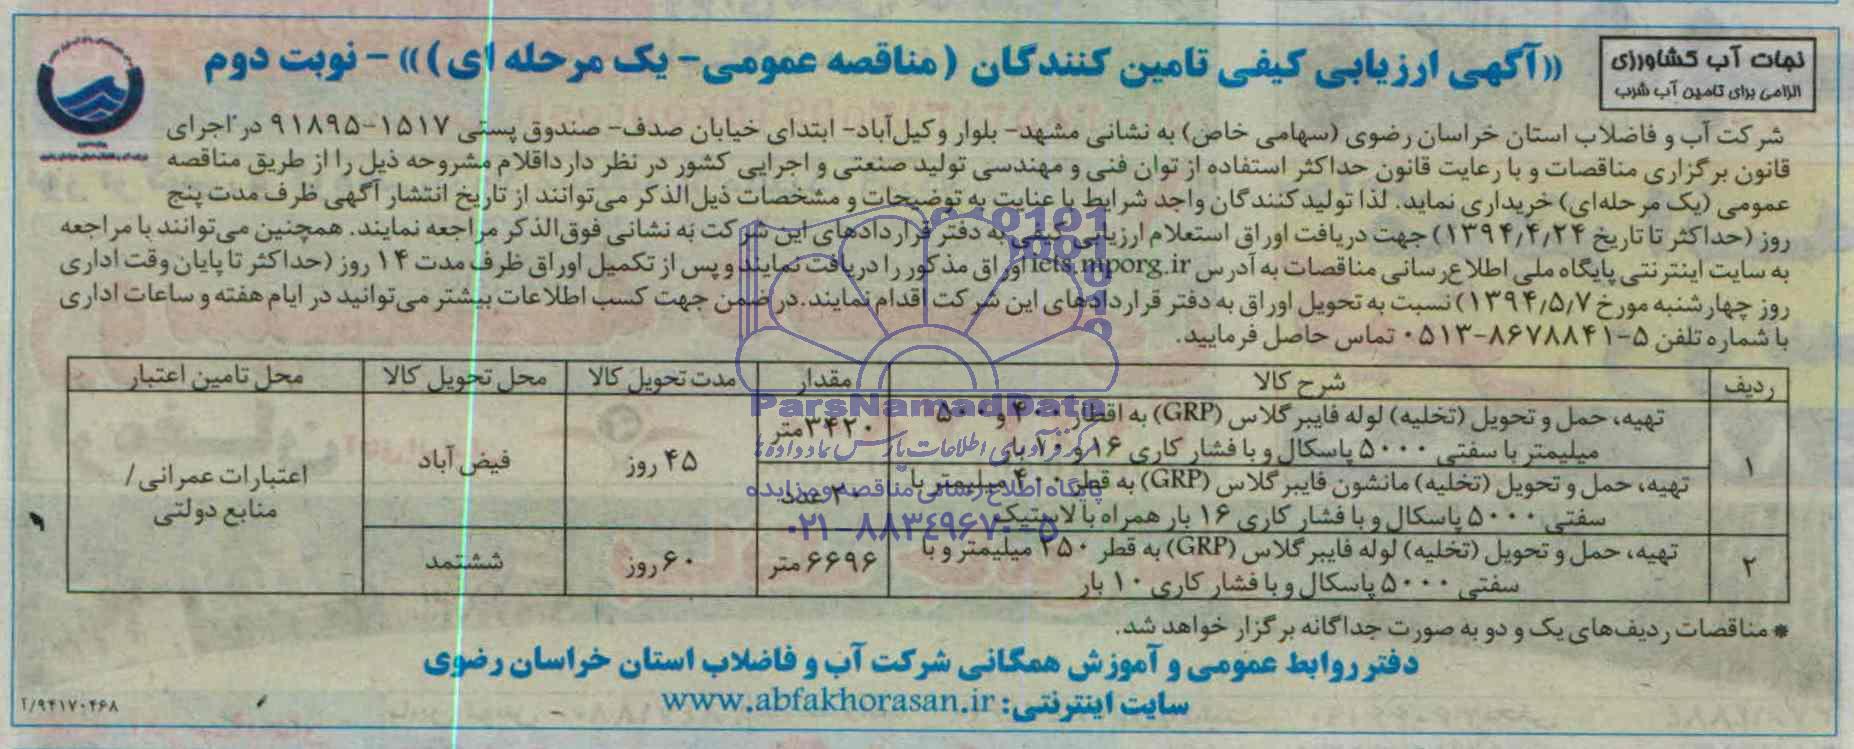 نجات آب کشاورزی
الزامی برای تامین آب شرب
«آگهی ارزیابی کیفی تامین کنندگان (مناقصه عمومی- یک مرحله ای)» - نوبت دوم
شرکت آب و فاضلاب استان خراسان رضوی (سهامی خاص) به نشانی مشهد- بلوار وکیل‌آباد- ابتدای خیابان صدف- صندوق پستی ۱۵۱۷-۹۱۸۹۵ در اجرای
قانون برگزاری مناقصات و با رعایت قانون حداکثر استفاده از توان فنی و مهندسی تولید صنعتی و اجرایی کشور در نظر دارد اقلام مشروحه ذیل را از طریق مناقصه
عمومی (یک مرحله‌ای) خریداری نماید. لذا تولیدکنندگان واجد شرایط با عنایت به توضیحات و مشخصات ذیل‌الذکر می‌توانند از تاریخ انتشار آگهی ظرف مدت پنج
روز (حداکثر تا تاریخ ۱۳۹۴/۴/۲۴) جهت دریافت اوراق استعلام ارزیابی کیفی به دفتر قراردادهای این شرکت به نشانی فوق‌الذکر مراجعه نمایند. همچنین می‌توانند با مراجعه
به سایت اینترنتی پایگاه ملی اطلاع‌رسانی مناقصات به آدرس iets.mporg.ir اوراق مذکور را دریافت نمایند و پس از تکمیل اوراق ظرف مدت ۱۴ روز (حداکثر تا پایان وقت اداری
روز چهارشنبه مورخ ۱۳۹۴/۵/۷) نسبت به تحویل اوراق به دفتر قراردادهای این شرکت اقدام نمایند. در ضمن جهت کسب اطلاعات بیشتر می‌توانید در ایام هفته و ساعات اداری
با شماره تلفن ۵-۸۶۷۸۸۴۱-۰۵۱۳ تماس حاصل فرمایید.
ردیف شرح کالا مقدار مدت تحویل کالا محل تحویل کالا محل تامین اعتبار
۱ تهیه، حمل و تحویل (تخلیه) لوله فایبرگلاس (GRP) به اقطار ۴۰۰ و ۵۰۰
میلیمتر با سفتی ۵۰۰۰ پاسکال و با فشار کاری ۱۶ و ۱۰ بار
۳۴۲۰ متر ۴۵ روز فیض آباد اعتبارات عمرانی/
منابع دولتی
تهیه، حمل و تحویل (تخلیه) مانشون فایبرگلاس (GRP) به قطر ۴۰۰ میلیمتر با
سفتی ۵۰۰۰ پاسکال و با فشار کاری ۱۶ بار همراه با لاستیک
عدد
۲ تهیه، حمل و تحویل (تخلیه) لوله فایبرگلاس (GRP) به قطر ۲۵۰ میلیمتر و با
سفتی ۵۰۰۰ پاسکال و با فشار کاری ۱۰ بار
۶۶۹۶ متر ۶۰ روز ششتمد
* مناقصات ردیف‌های یک و دو به صورت جداگانه برگزار خواهد شد.
دفتر روابط عمومی و آموزش همگانی شرکت آب و فاضلاب استان خراسان رضوی
سایت اینترنتی: www.abfakhorasan.ir
۲/۹۴۱۷۰۴۶۸
ParsNamadData
مرکز فرآوری اطلاعات پارس نماد داده ها
پایگاه اطلاع رسانی مناقصه و مزایده
۰۲۱-۸۸۳۴۹۶۷۰-۵